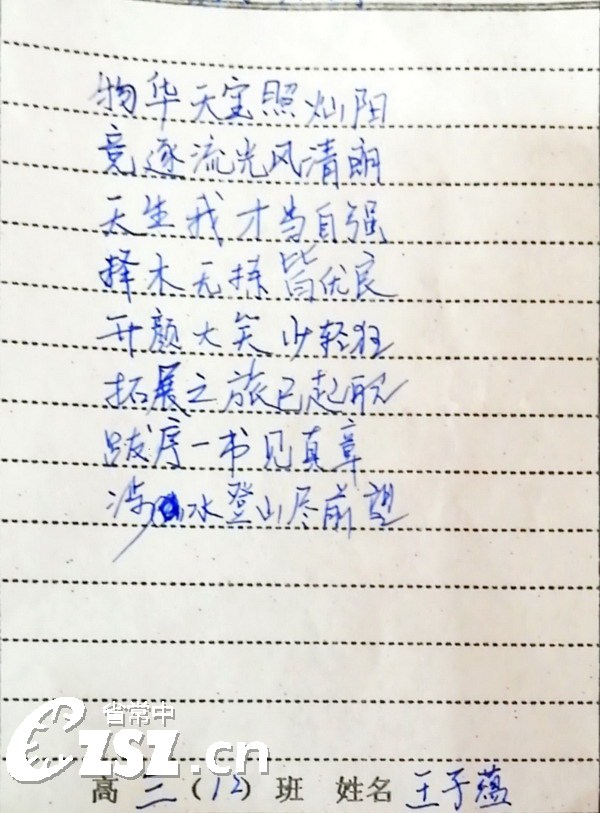 物华天宝照灿阳
竞逐流光风清朗
天生我才当自强
择木无拣皆优良
开颜大笑少轻狂
拓展之旅已起航
跋序一书见真章
涉水登山尽前望
省常中
CZSZ.cn
高三(12)班 姓名 王子蕴